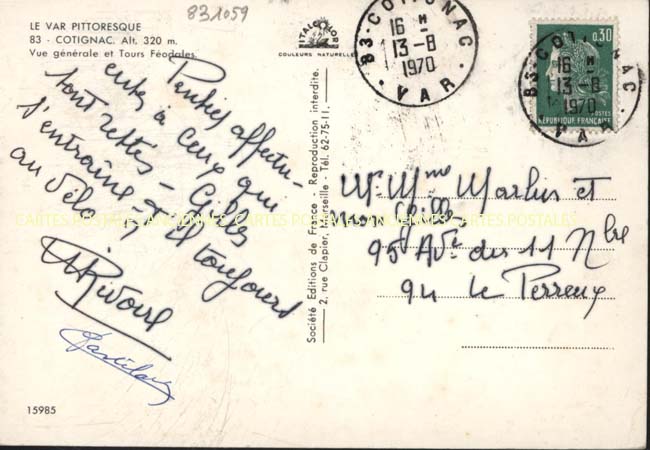 831059
LE VAR PITTORESQUE
83 - COTIGNAC. Alt. 320 m.
Vue générale et Tours Féodales.
ITALCOLOR
COULEURS NATURELLES
83 - COTIGNAC
16 H
13-8
1970
VAR
0,30
POSTES
REPUBLIQUE FRANÇAISE
83 - COTIGNAC
16 H
13-8
1970
VAR
Pensées affectu-
euses à ceux qui
sont restés - Gilles
s'entraîne toujours
au vélo
Société Editions de France - Reproduction interdite.
2, rue Clapier, Marseille - Tél. 62-75-11.
Mr Mme Marlin et
95 Ave du 11 Nbre
94 le Perreux
CARTES POSTALES ANCIENNES CARTES POSTALES ANCIENNES CARTES POSTALES
15985